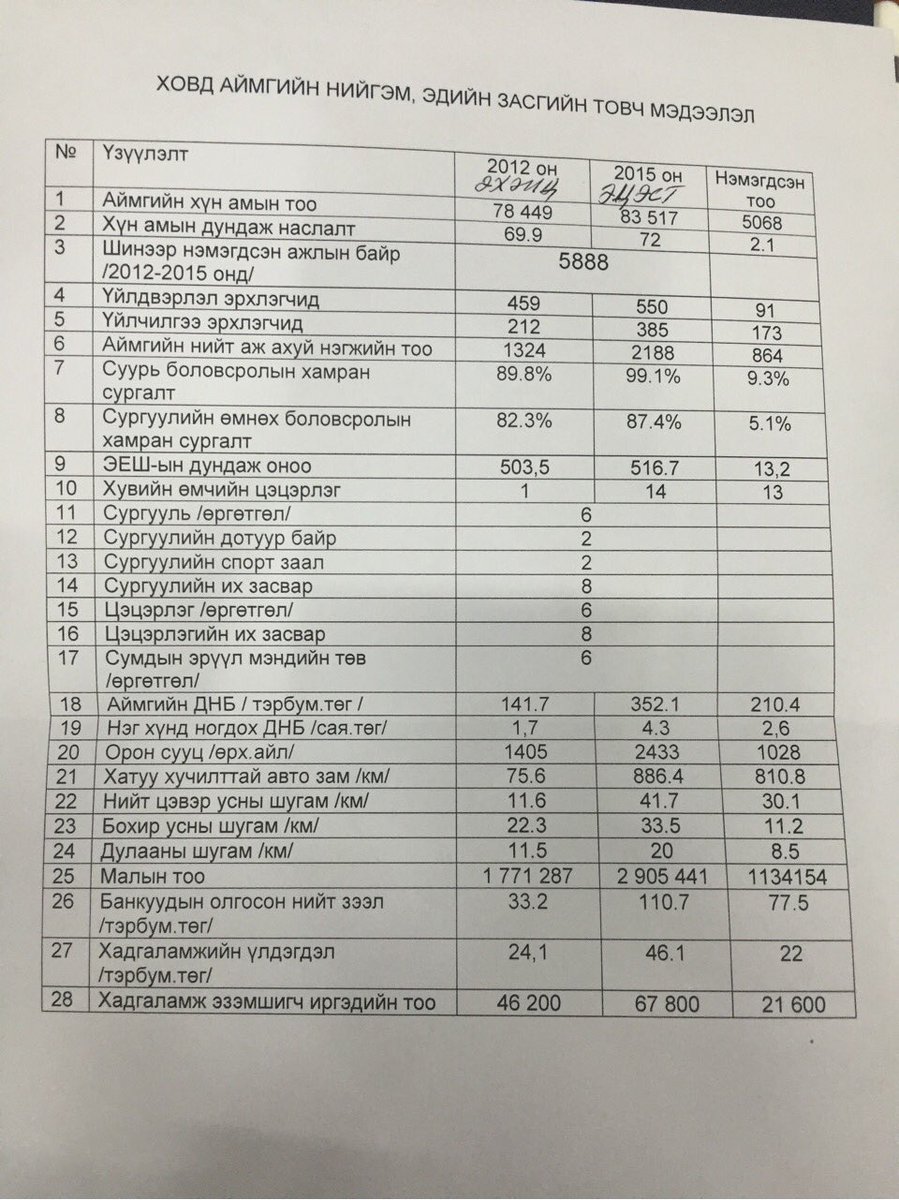 ХОВД АЙМГИЙН НИЙГЭМ, ЭДИЙН ЗАСГИЙН ТОВЧ МЭДЭЭЛЭЛ
№ Үзүүлэлт 2012 он эхэнд 2015 он эцэст Нэмэгдсэн тоо
1 Аймгийн хүн амын тоо 78 449 83 517 5068
2 Хүн амын дундаж наслалт 69.9 72 2.1
3 Шинээр нэмэгдсэн ажлын байр 5888
/2012-2015 онд/
4 Үйлдвэрлэл эрхлэгчид 459 550 91
5 Үйлчилгээ эрхлэгчид 212 385 173
6 Аймгийн нийт аж ахуй нэгжийн тоо 1324 2188 864
7 Суурь боловсролын хамран 89.8% 99.1% 9.3%
сургалт
8 Сургуулийн өмнөх боловсролын 82.3% 87.4% 5.1%
хамран сургалт
9 ЭЕШ-ын дундаж оноо 503,5 516.7 13,2
10 Хувийн өмчийн цэцэрлэг 1 14 13
11 Сургууль /өргөтгөл/ 6
12 Сургуулийн дотуур байр 2
13 Сургуулийн спорт заал 2
14 Сургуулийн их засвар 8
15 Цэцэрлэг /өргөтгөл/ 6
16 Цэцэрлэгийн их засвар 8
17 Сумдын эрүүл мэндийн төв 6
/өргөтгөл/
18 Аймгийн ДНБ / тэрбум.төг / 141.7 352.1 210.4
19 Нэг хүнд ногдох ДНБ /сая.төг/ 1,7 4.3 2,6
20 Орон сууц /өрх.айл/ 1405 2433 1028
21 Хатуу хучилттай авто зам /км/ 75.6 886.4 810.8
22 Нийт цэвэр усны шугам /км/ 11.6 41.7 30.1
23 Бохир усны шугам /км/ 22.3 33.5 11.2
24 Дулааны шугам /км/ 11.5 20 8.5
25 Малын тоо 1 771 287 2 905 441 1134154
26 Банкуудын олгосон нийт зээл 33.2 110.7 77.5
/тэрбум.төг/
27 Хадгаламжийн үлдэгдэл 24,1 46.1 22
/тэрбум.төг/
28 Хадгаламж эзэмшигч иргэдийн тоо 46 200 67 800 21 600